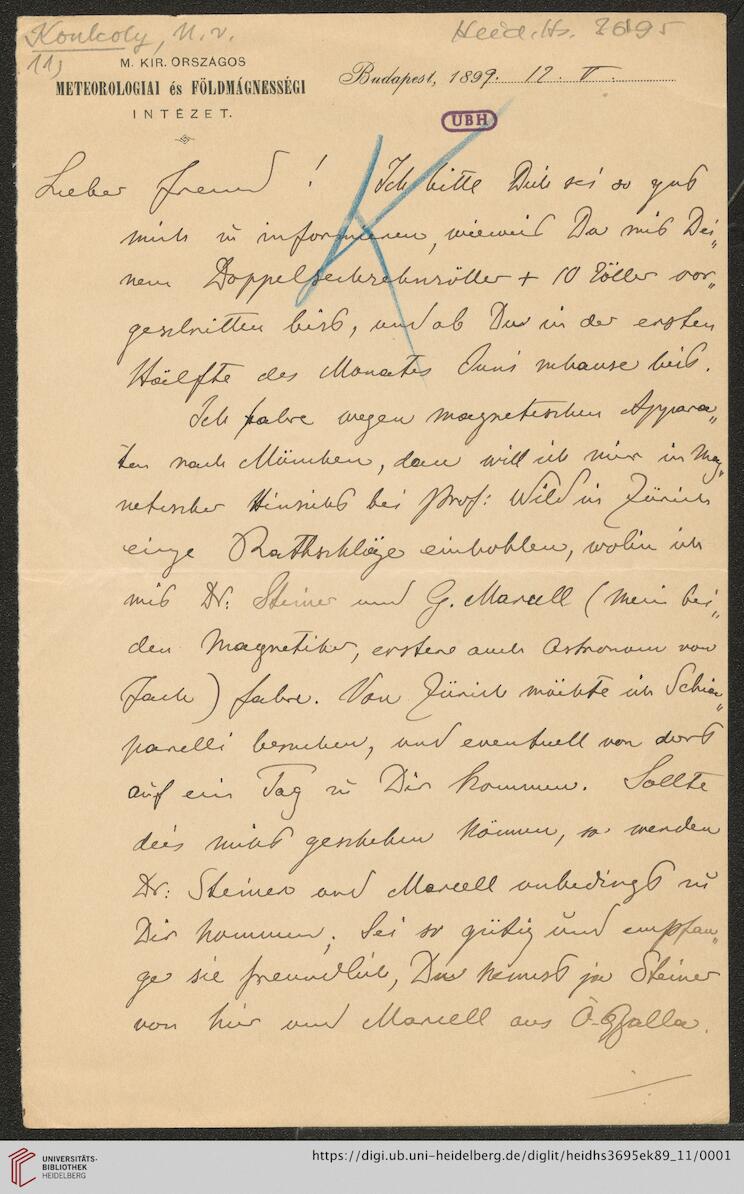 Konkoly, N. v.
Heid. Hs. 3695
11)
M. KIR. ORSZÁGOS
METEOROLOGIAI és FÖLDMÁGNESSÉGI
INTÉZET.
Budapest, 1899. 12. V.
UBH
Lieber Freund! Ich bitte Dich sei so gut
mich zu informieren, wieweit Du mit Dei„
nem Doppelsechzehnzöller + 10 Zöller vor„
geschritten bist, und ob Du in der ersten
Hälfte des Monates Juni zuhause bist.
Ich fahre wegen magnetischen Appara„
ten nach München, dann will ich mir in Mag„
netischer Hinsicht bei Prof: Wild in Zürich
einige Rathschläge einhohlen, wohin ich
mit Dr: Steiner und G. Marcell (mein bei„
den Magnetiker, erstere auch Astronom von
Fach) fahre. Von Zürich möchte ich Schia„
parelli besuchen, und eventuell von dort
auf ein Tag zu Dir kommen. Sollte
dies nicht geschehen können, so werden
Dr: Steiner und Marcell unbedingt zu
Dir kommen; Sei so gütig und empfan„
ge sie freundlich, Du kennst ja Steiner
von hier und Marcell aus Ó-Gyalla.
UNIVERSITÄTS-
BIBLIOTHEK
HEIDELBERG
https://digi.ub.uni-heidelberg.de/diglit/heidhs3695ek89_11/0001